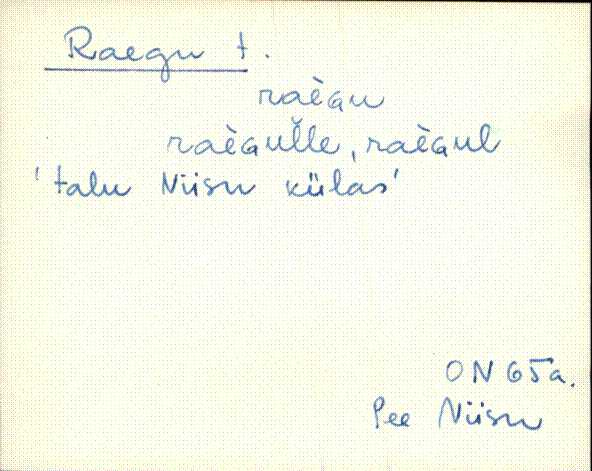 Raegu t.
raègu
raèguĺle, raègul
'talu Niisu külas'
ON 65a.
Pee Niisu